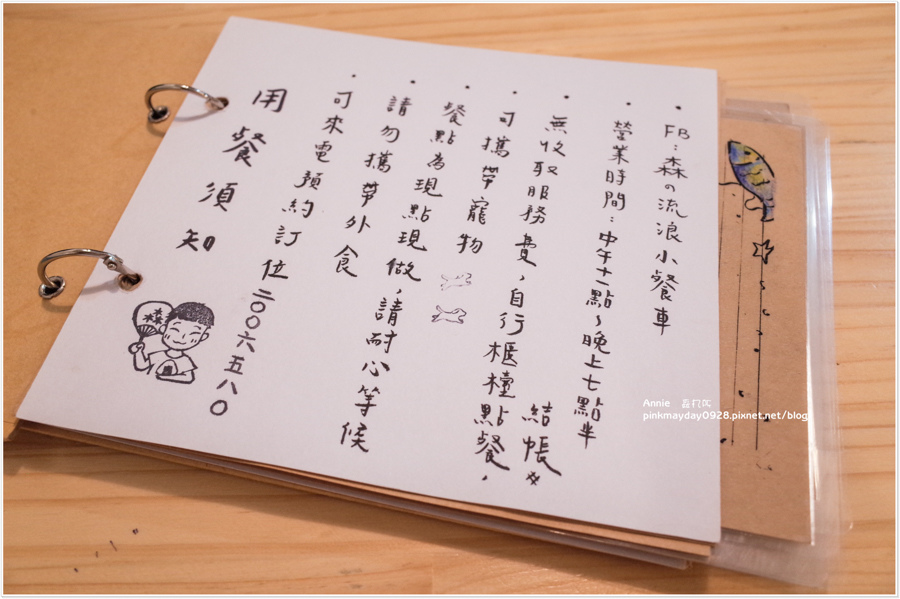 FB：森の流浪小餐車
營業時間：中午十一點～晚上七點半
無收取服務費，自行櫃檯點餐，
結帳※
可攜帶寵物
餐點為現點現做，請耐心等候
請勿攜帶外食
可來電預約訂位 二〇〇六五八〇
用餐須知
森
Annie
pinkmayday0928.pixnet.net/blog